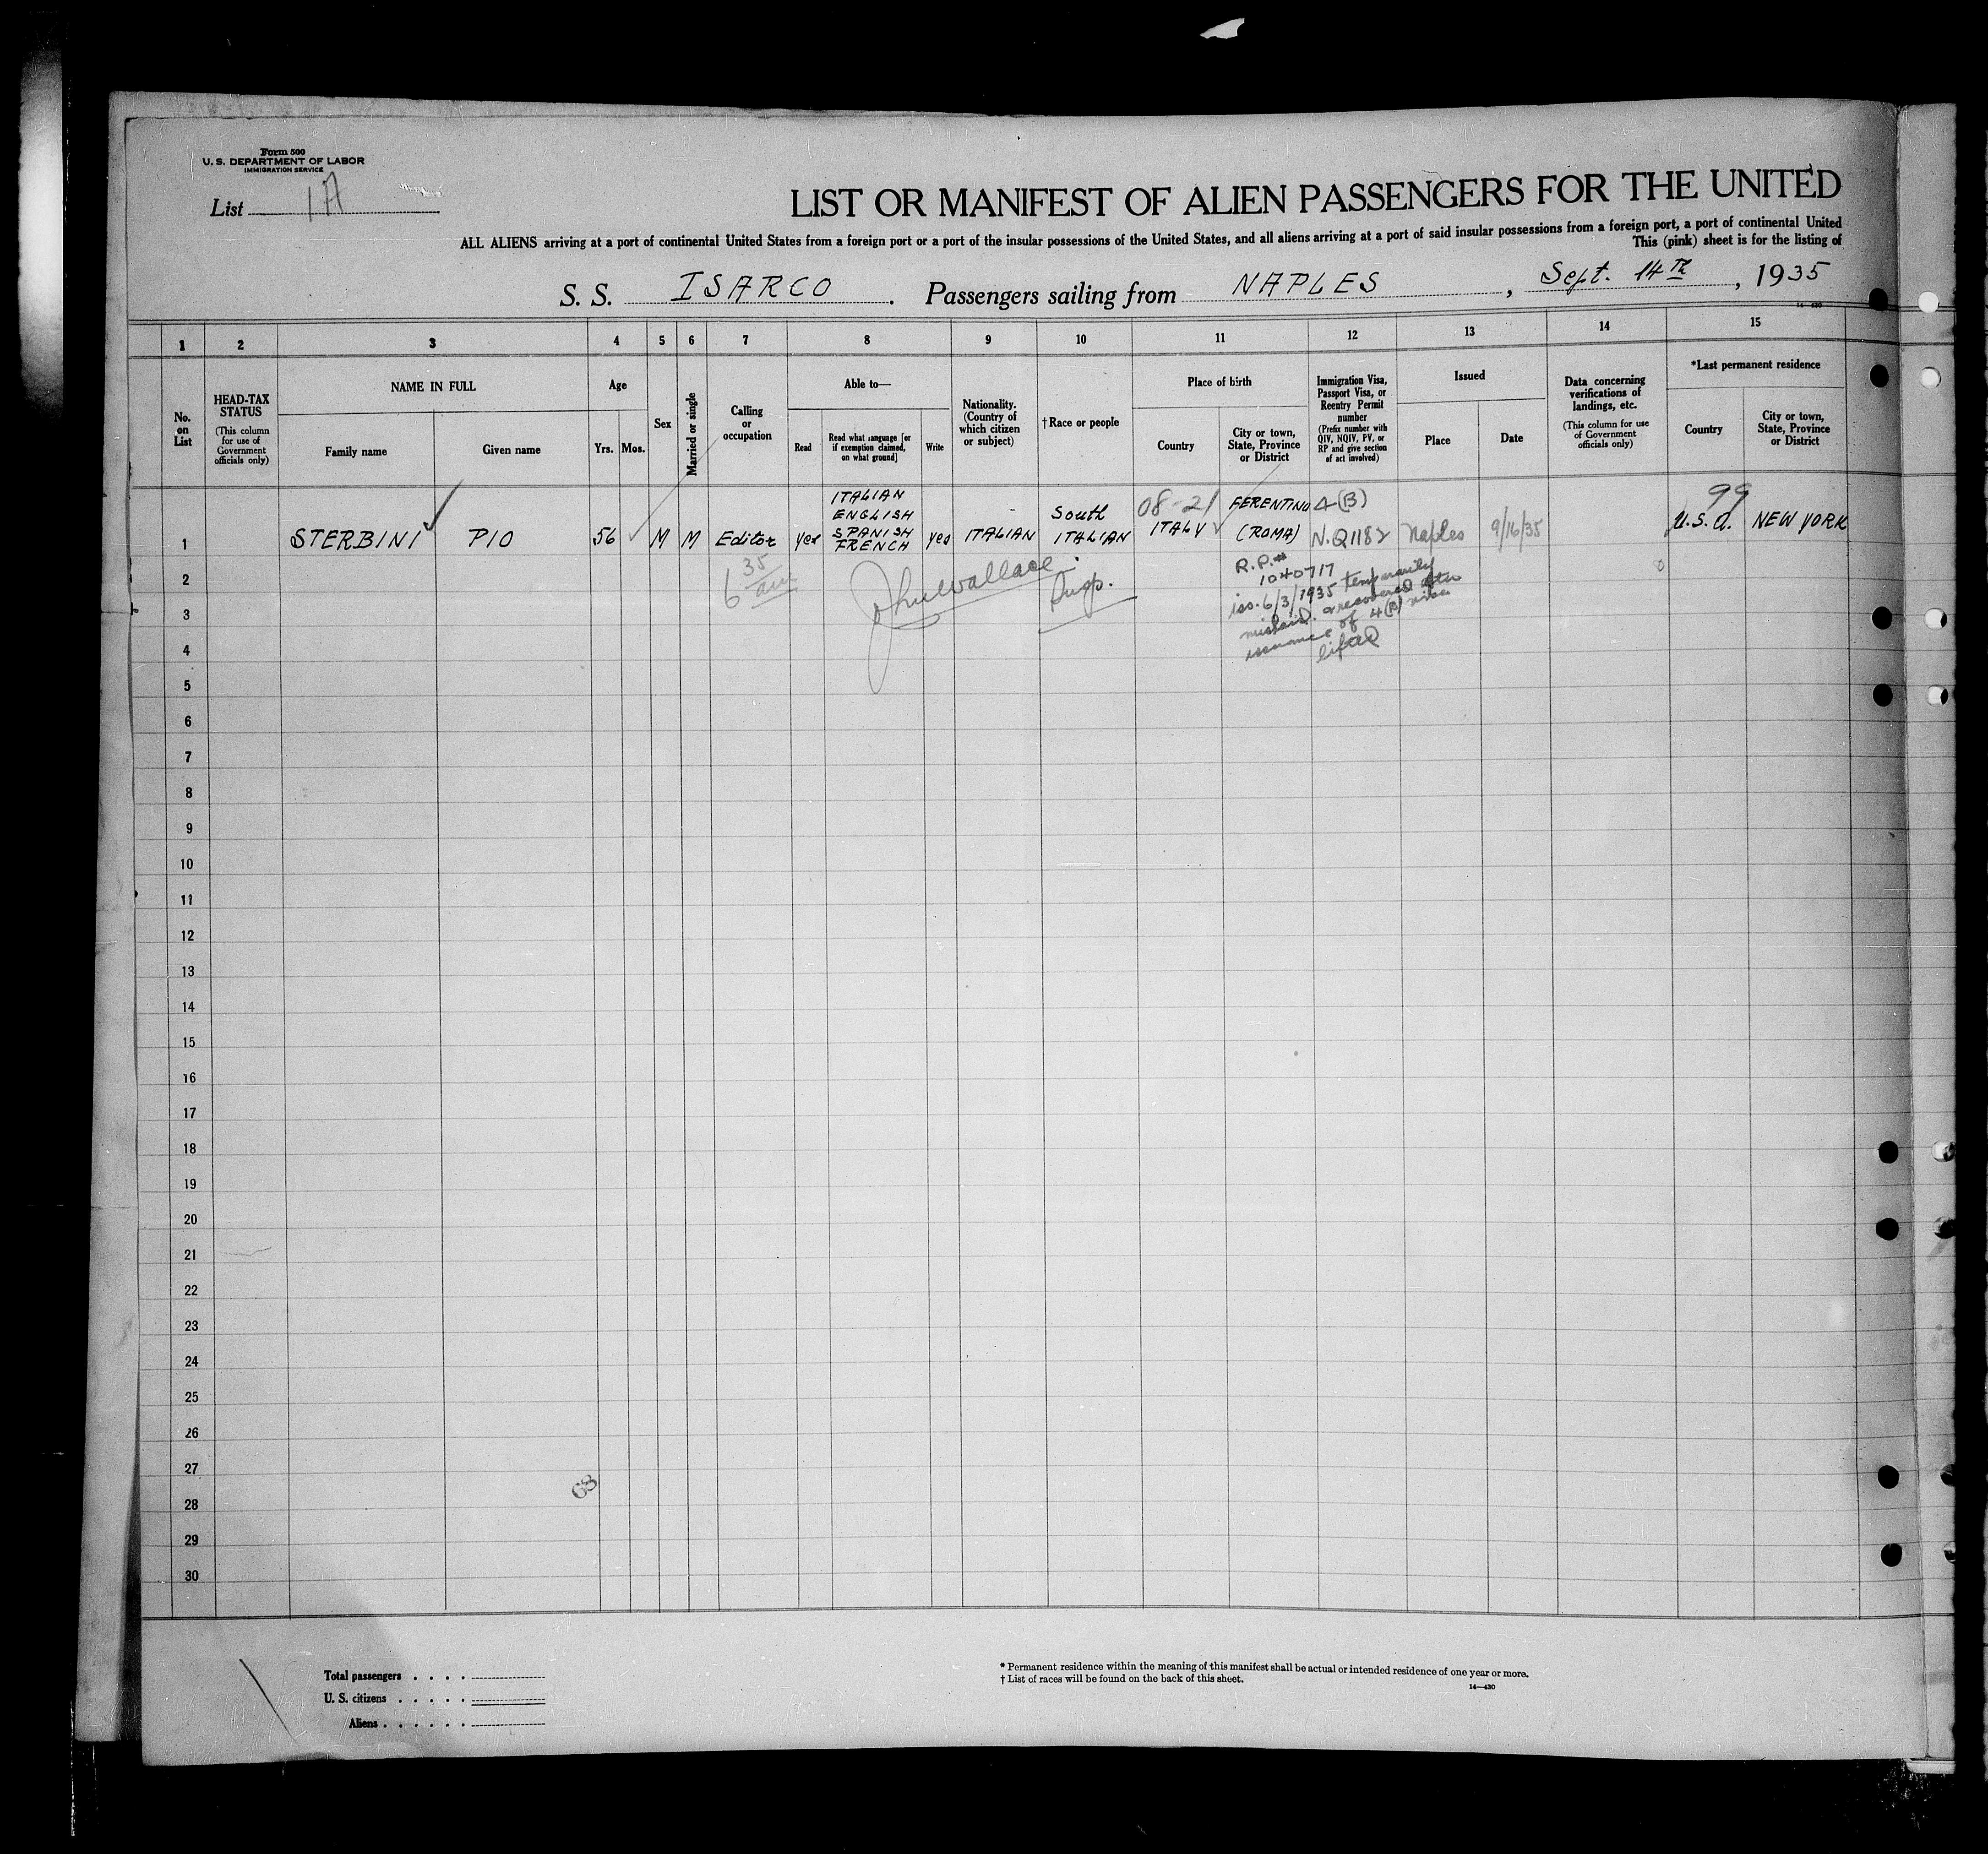 Form 500
U. S. DEPARTMENT OF LABOR
IMMIGRATION SERVICE
List 1A
LIST OR MANIFEST OF ALIEN PASSENGERS FOR THE UNITED
ALL ALIENS arriving at a port of continental United States from a foreign port or a port of the insular possessions of the United States, and all aliens arriving at a port of said insular possessions from a foreign port, a port of continental United
This (pink) sheet is for the listing of
S. S. ISARCO. Passengers sailing from NAPLES, Sept. 14th, 1935
14-430
1 2 3 4 5 6 7 8 9 10 11 12 13 14 15
No. on List
HEAD-TAX STATUS
(This column for use of Government officials only)
NAME IN FULL
Family name
Given name
Age
Yrs. Mos.
Sex
Married or single
Calling or occupation
Able to—
Read
Read what language [or if exemption claimed, on what ground]
Write
Nationality. (Country of which citizen or subject)
†Race or people
Place of birth
Country
City or town, State, Province or District
Immigration Visa, Passport Visa, or Reentry Permit number
(Prefix number with QIV, NQIV, PV, or RP and give section of act involved)
Issued
Place
Date
Data concerning verifications of landings, etc.
(This column for use of Government officials only)
*Last permanent residence
Country
City or town, State, Province or District
1 STERBINI PIO 56 M M Editor yes ITALIAN ENGLISH SPANISH FRENCH yes ITALIAN South ITALIAN 08-21 ITALY FERENTINO (ROMA) 4(B) N.Q1182 Naples 9/16/35 99 U.S.A. NEW YORK
6 35 am
Jno Wallace Insp.
R.P.#
1040717
iss. 6/3/1935 temporarily
mislaid & recovered after
issuance of 4(B) visa
lifted
2
3
4
5
6
7
8
9
10
11
12
13
14
15
16
17
18
19
20
21
22
23
24
25
26
27
28
29
30
63
Total passengers . . . .
U. S. citizens . . . . .
Aliens . . . . . .
* Permanent residence within the meaning of this manifest shall be actual or intended residence of one year or more.
† List of races will be found on the back of this sheet.
14—430